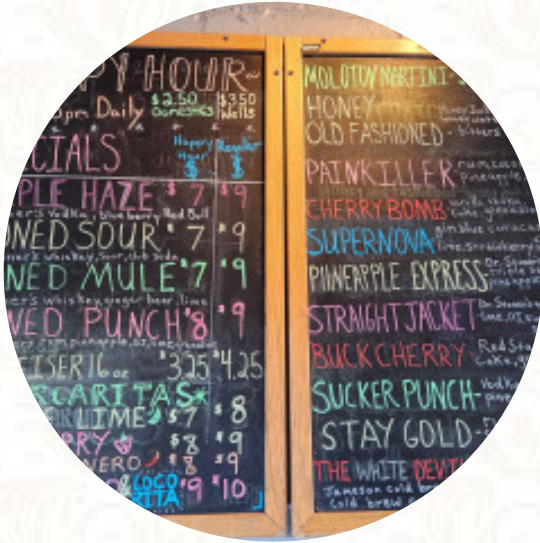 PY HOUR~
pm Daily $2.50 Domestics $3.50 Wells
CIALS Happy Hour $ Regular $
PLE HAZE $7 $9
Vodka, blueberry, Red Bull
NED SOUR $7 $9
whiskey, sour, club soda
NED MULE $7 $9
er's whiskey, ginger beer, lime
NED PUNCH $8 $9
ISER 16 oz $3.25 $4.25
RGARITAS*
LIME $7 $8
RRY $8 $9
NERO $8 $9
& COCO RITA $9 $10
MOLOTOV MARTINI-
HONEY
OLD FASHIONED - bitters
PAINKILLER rum, coco
pineapple,
CHERRY BOMB
SUPERNOVA
lime, strawberry
PIINEAPPLE EXPRESS-
STRAIGHT JACKET-
BUCK CHERRY- Red Sta
Coke,
SUCKER PUNCH- Vodka
pine
STAY GOLD-
THE WHITE DEVI
Jameson cold br
Cold brew